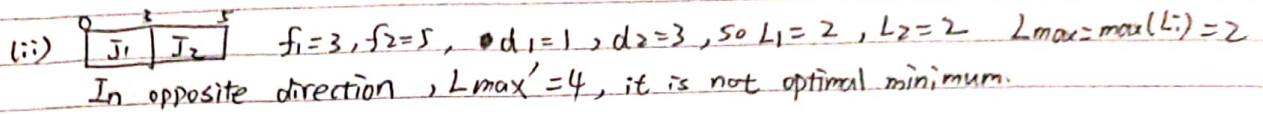 0 3 5
(ii) J1 J2 f1=3, f2=5, d1=1, d2=3, so L1=2, L2=2 Lmax=max(Li)=2
In opposite direction, Lmax'=4, it is not optimal minimum.